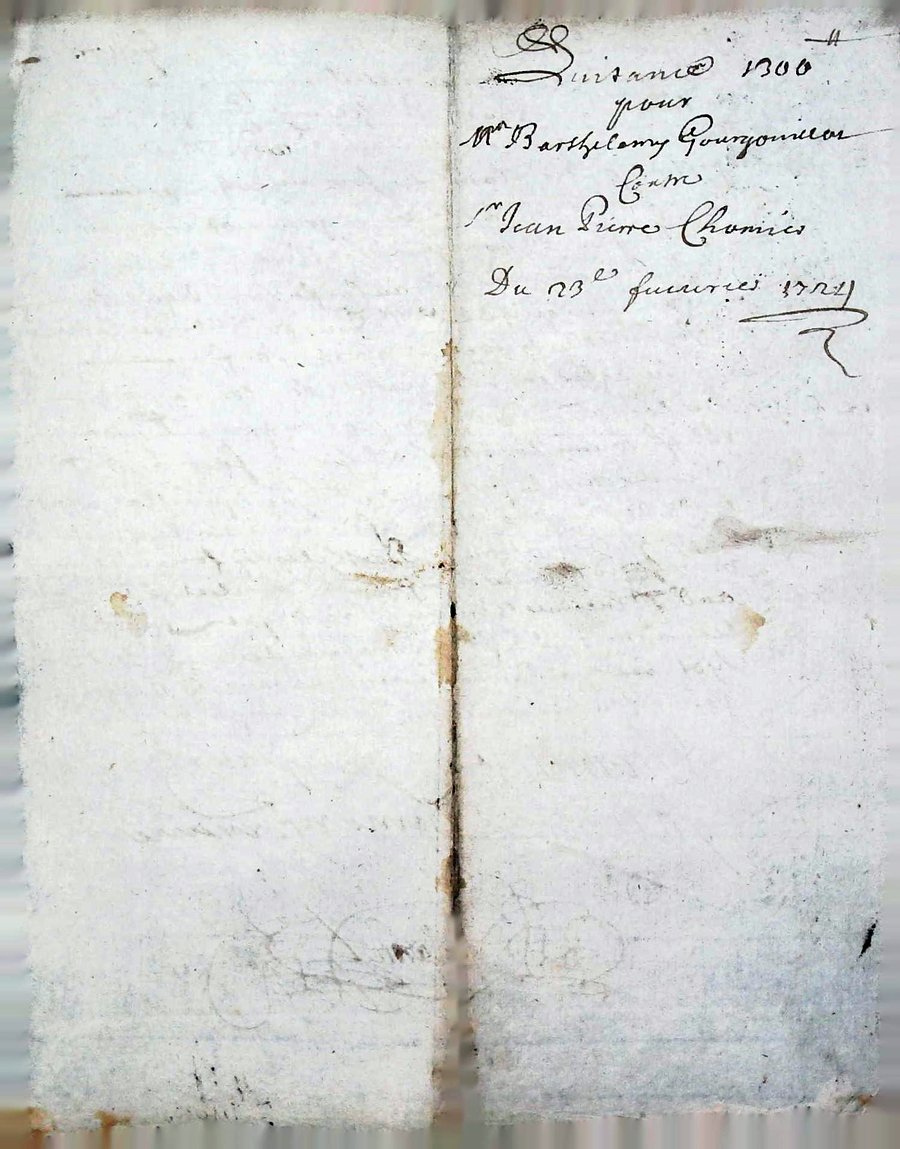 Quitance 1300 ll
pour
Mre Barthelemy Gourgouillat
Contre
Sr Jean Pierre Chomier
Du 23e feuvrier 1724